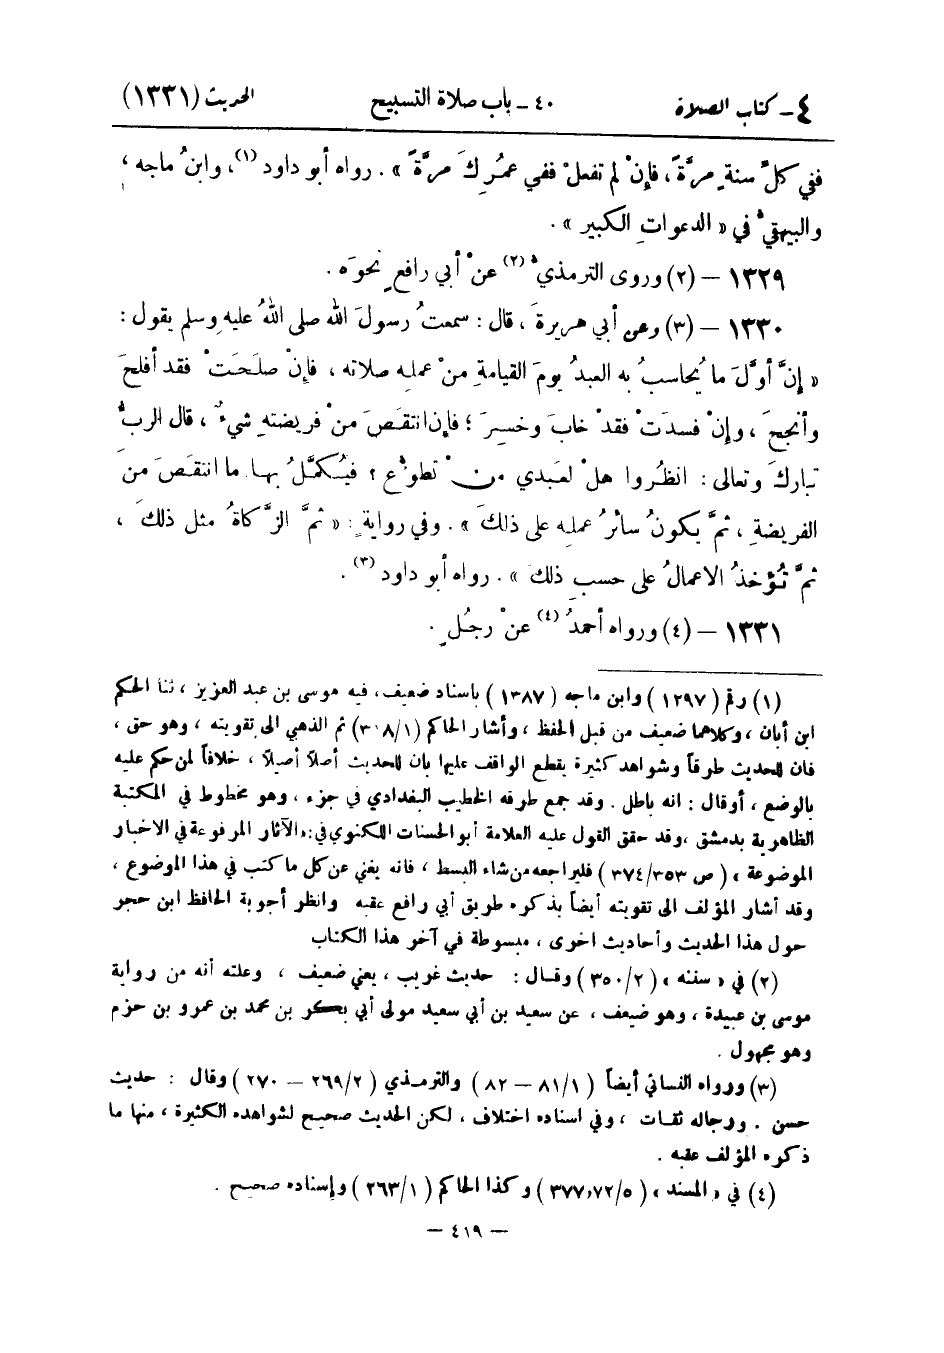 ٤ - كتاب الصلاة ٤٠ - باب صلاة التسبيح الحديث (١٣٣١)
ففي كلِّ سنةٍ مرَّةً، فإنْ لم تفعلْ ففي عمُرِكَ مرَّةً » . رواه أبو داود (١)، وابنُ ماجه ،
والبيهقيُّ في « الدعواتِ الكبير » .
١٣٢٩ – (٢) وروى الترمذيُّ (٢) عنْ أبي رافعٍ نحوَه .
١٣٣٠ – (٣) وعن أبي هريرةَ ، قال : سمعتُ رسولَ الله صلى اللهُ عليه وسلم يقول :
« إنَّ أوَّلَ ما يُحاسبُ به العبدُ يومَ القيامةِ منْ عمله صلاته ، فإنْ صلَحَتْ فقد أفلحَ
وأنجحَ ، وإنْ فسدَتْ فقدْ خابَ وخسِرَ ؛ فإن انتقَصَ منْ فريضتهِ شيءٌ ، قال الربُّ
تباركَ وتعالى : انظُروا هلْ لعَبدي منْ تطوُّعٍ ؟ فيُكمَّلُ بها ما انتقَصَ منَ
الفريضةِ ، ثمَّ يكونُ سائرُ عملِه على ذلكَ » . وفي روايةٍ : « ثمَّ الزَّكاةُ مثل ذلكَ ،
ثمَّ تُؤخذُ الاعمالُ على حسبِ ذلكَ » . رواه أبو داود (٣) .
١٣٣١ – (٤) ورواه أحمدُ (٤) عنْ رجُلٍ .
(١) رقم (١٢٩٧) وابن ماجه (١٣٨٧) باسناد ضعيف، فيه موسى بن عبد العزيز ، ثنا الحكم
ابن أبان ، وكلاهما ضعيف من قبل الحفظ ، وأشار الحاكم (٣٠٨/١) ثم الذهبي الى تقويته ، وهو حق ،
فان للحديث طرقاً وشواهد كثيرة يقطع الواقف عليها بان للحديث أصلاً أصيلاً ، خلافاً لمن حكم عليه
بالوضع ، أو قال : انه باطل . وقد جمع طرقه الخطيب البغدادي في جزء ، وهو مخطوط في المكتبة
الظاهرية بدمشق ، وقد حقق القول عليه العلامة أبو الحسنات اللكنوي في : « الآثار المرفوعة في الاخبار
الموضوعة » ( ص ٣٧٤/٣٥٣ ) فليراجعه من شاء البسط ، فانه يغني عن كل ما كتب في هذا الموضوع ،
وقد أشار المؤلف الى تقويته أيضاً بذكره طريق أبي رافع عقبه وانظر أجوبة الحافظ ابن حجر
حول هذا الحديث وأحاديث اخرى ، مبسوطة في آخر هذا الكتاب
(٢) في « سننه » ( ٣٥٠/٢ ) وقال : حديث غريب ، يعني ضعيف ، وعلته أنه من رواية
موسى بن عبيدة ، وهو ضعيف ، عن سعيد بن أبي سعيد مولى أبي بكر بن محمد بن عمرو بن حزم
وهو مجهول .
(٣) ورواه النسائي أيضاً ( ٨١/١ – ٨٢ ) والترمذي ( ٢٦٩/٢ – ٢٧٠ ) وقال : حديث
حسن . ورجاله ثقات ، وفي اسناده اختلاف ، لكن الحديث صحيح لشواهده الكثيرة ، منها ما
ذكره المؤلف عقبه .
(٤) في « المسند » ( ٣٧٧،٧٢/٥ ) وكذا الحاكم ( ٢٦٣/١ ) وإسناده صحيح .
– ٤١٩ –